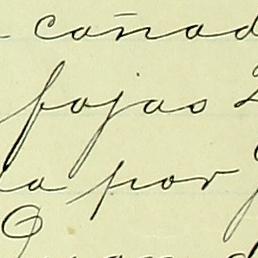 cañad
fojas 2
a por